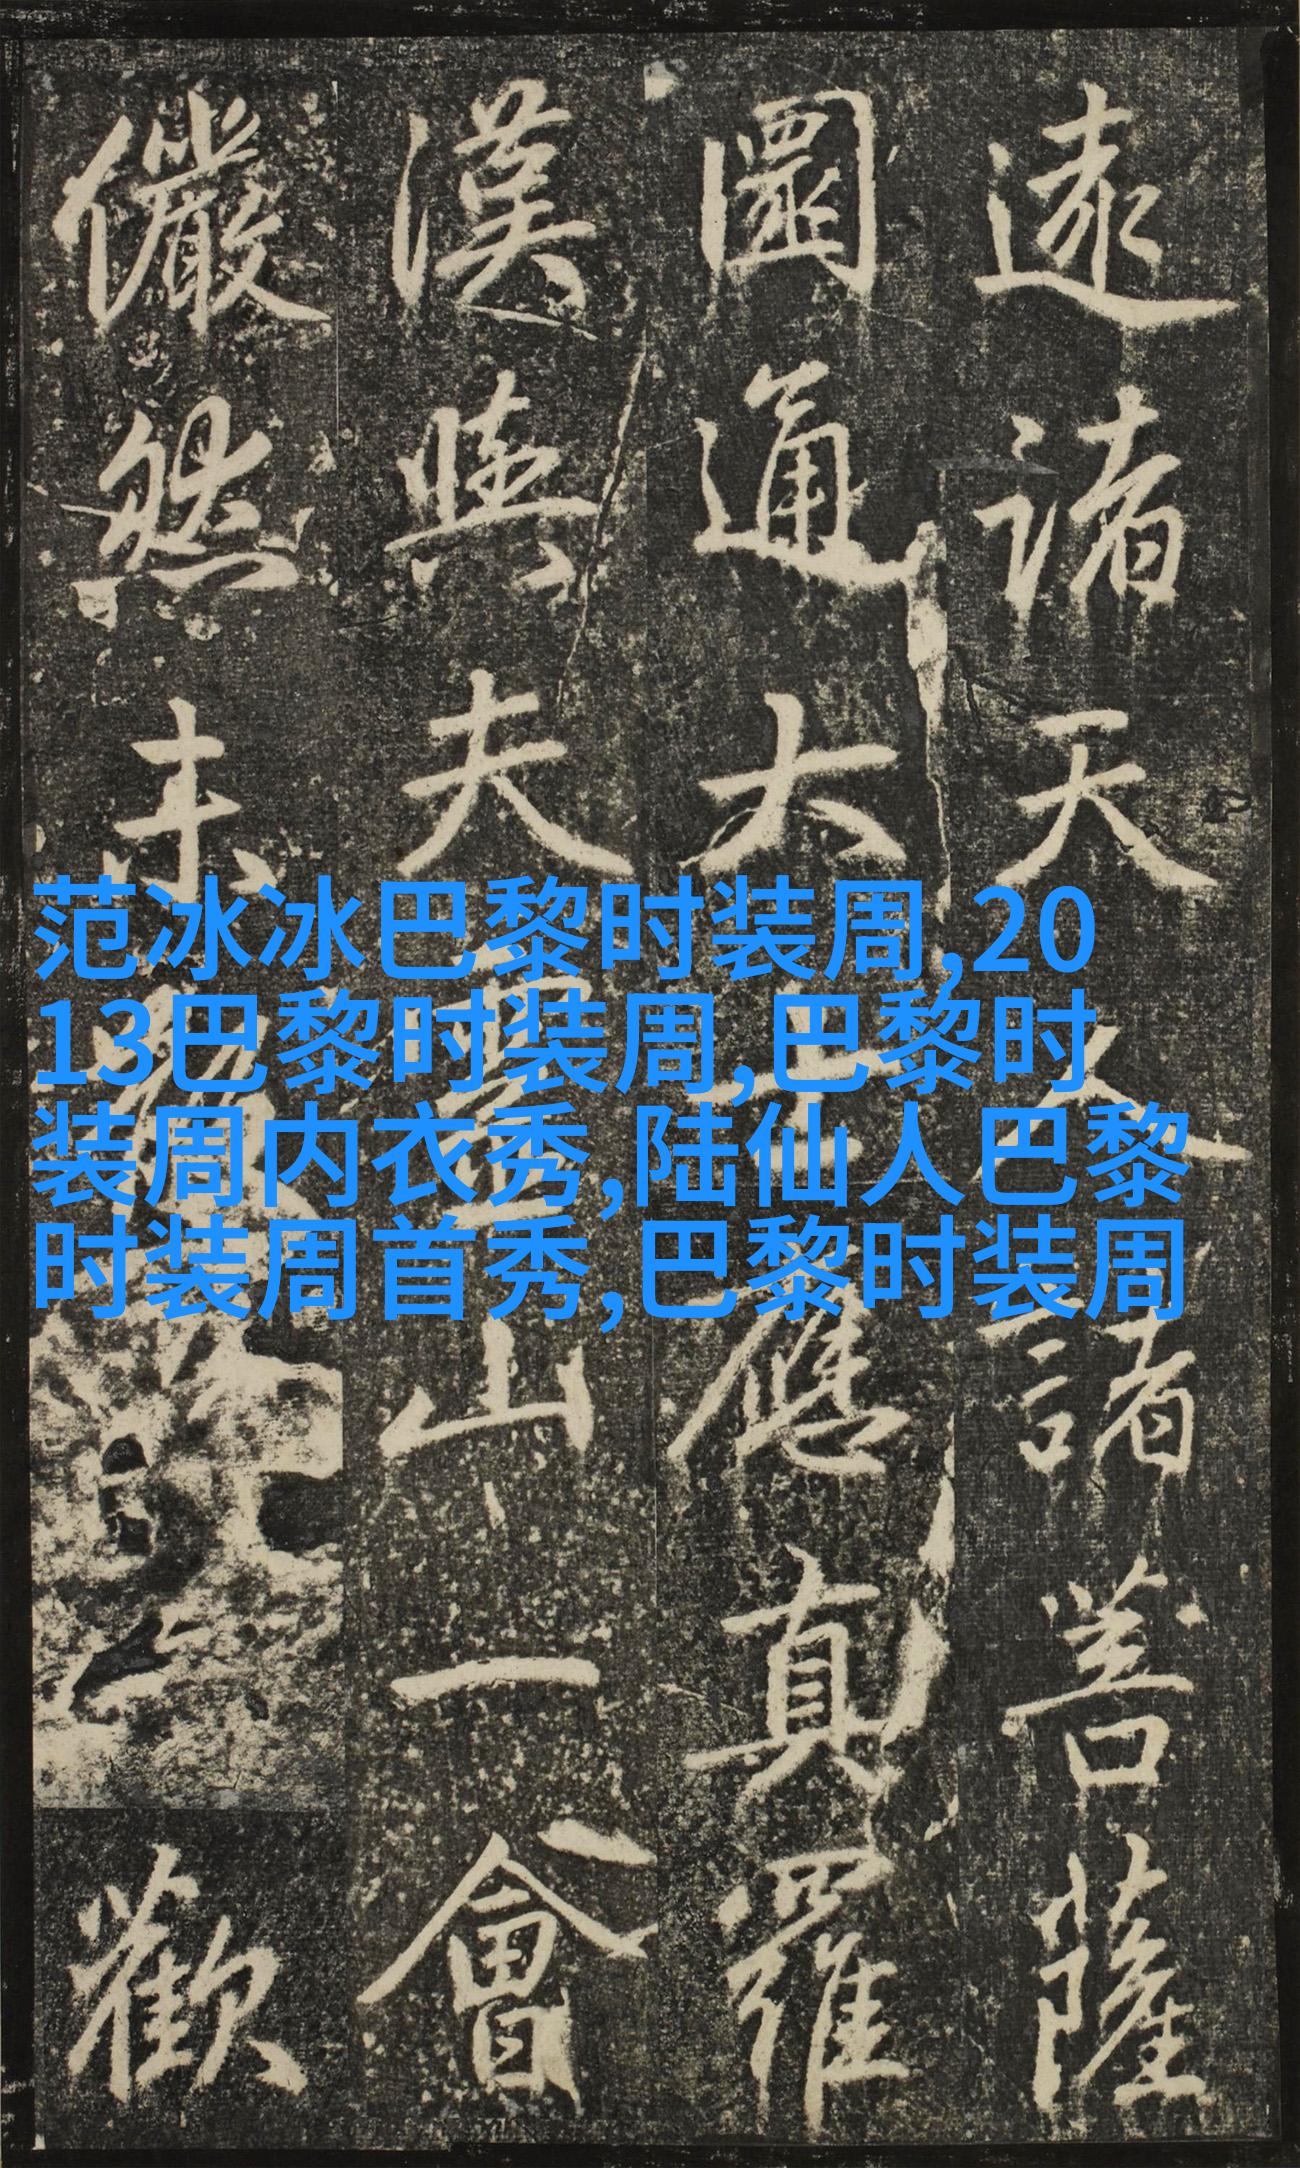 范冰冰巴黎时装周,20
13巴黎时装周,巴黎时
装周内衣秀,陆仙人巴黎
时装周首秀,巴黎时装周
逺諸天人諸菩薩
圓通大士應真羅
漢與夫靈山一會
儼然未散歡